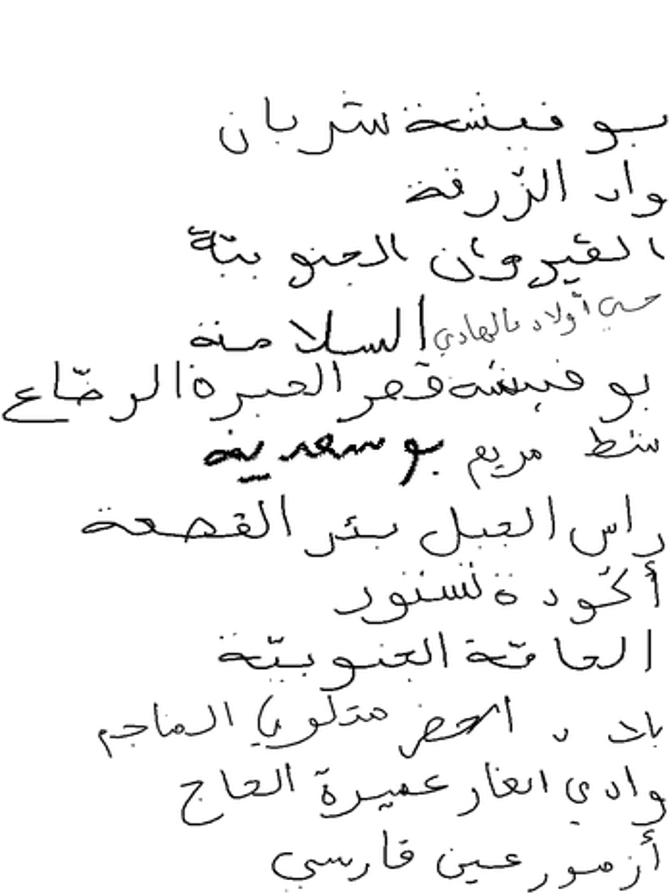 بو فيشة شربان
واد الزّرقة
القيروان الجنوبيّة
حي أولاد بالهادي السلامنة
بو فيشه قصر الحيرة الرضّاع
شط مريم بو سعدية
راس الجبل بئر القصعة
أكّودة تستور
الحامّة الجنوبيّة
باب الخضر متلوي المناجم
وادي الغار عميرة الحاج
أزمور عين فارسي